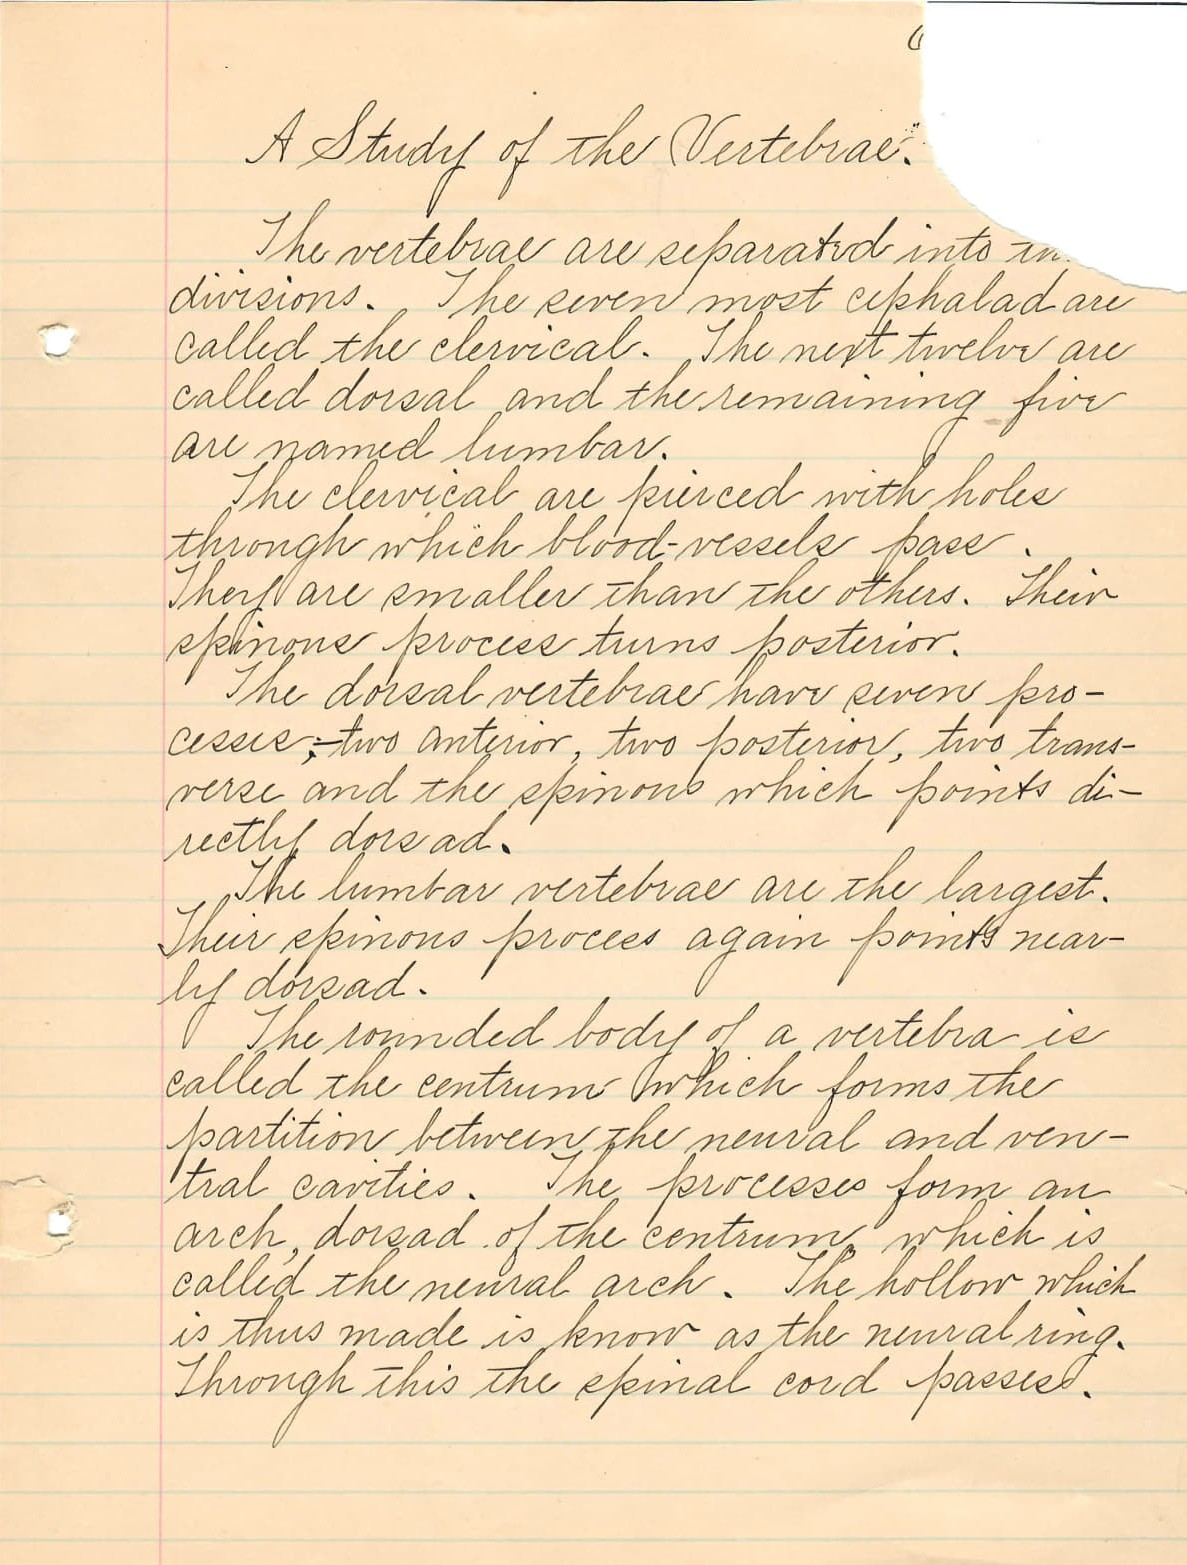 A Study of the Vertebrae.
The vertebrae are separated into
divisions. The seven most cephalad are
called the clervical. The next twelve are
called dorsal and the remaining five
are named lumbar.
The clervical are pierced with holes
through which blood-vessels pass.
They are smaller than the others. Their
spinous process turns posterior.
The dorsal vertebrae have seven pro-
cesses;-two anterior, two posterior, two trans-
verse and the spinous which points di-
rectly dorsad.
The lumbar vertebrae are the largest.
Their spinous process again points near-
ly dorsad.
The rounded body of a vertebra is
called the centrum which forms the
partition between the neural and ven-
tral cavities. The processes form an
arch, dorsad of the centrum, which is
called the neural arch. The hollow which
is thus made is know as the neural ring.
Through this the spinal cord passes.